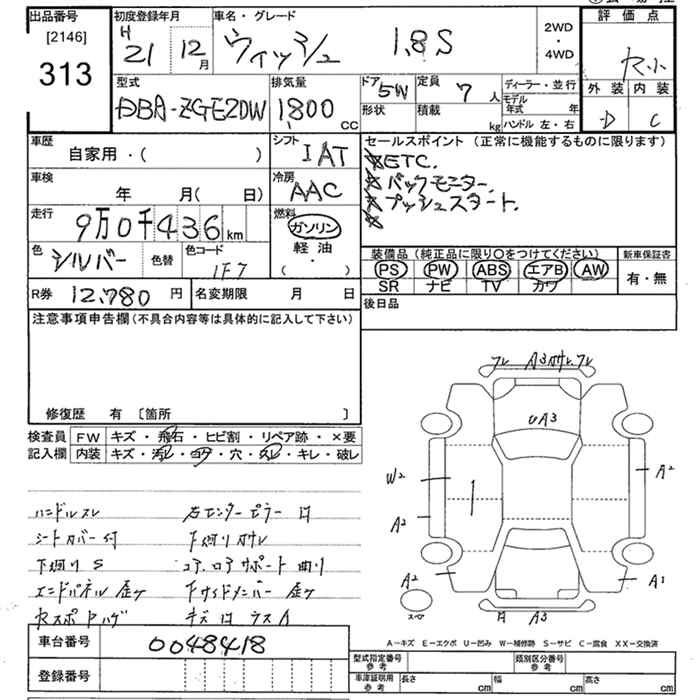 出品番号
[2146]
313
初度登録年月
H 21 12月
車名・グレード
ウィッシュ 1.8S
2WD
・
4WD
評価点
外装 内装
D C
型式
DBA-ZGE20W
排気量
1800 CC
ドア 5W
形状
定員 7人
積載 kg
ディーラー・並行
モデル年式 年
ハンドル 左・右
車歴
自家用・( )
シフト
IAT
車検
年 月( 日)
冷房
AAC
走行
9万0千436km
燃料
ガソリン
軽油
・
( )
色
シルバー
色替
色コード
1F7
R券 12,780 円
名変期限 月 日
セールスポイント (正常に機能するものに限ります)
ETC.
バックモニター.
プッシュスタート.
装備品(純正品に限り○をつけてください)
PS PW ABS エアB AW
SR ナビ TV カワ
新車保証書
有・無
後日品
注意事項申告欄(不具合内容等は具体的に記入して下さい)
修復歴 有 〔箇所 〕
検査員 FW キズ・飛石・ヒビ割・リペア跡・×要
記入欄 内装 キズ・汚レ・コゲ・穴・スレ・キレ・破レ
ハンドルスレ 右センターピラー
シートカバー付 下廻りサビ
下廻り S コアロアサポート曲り
エンドパネル 歪 下サイドメンバー 歪
キズ
車台番号 0048418
登録番号
フレ A3 サレ.フレ
UA3
W2
A2
A2
A2
A1
A3
A-キズ E-エクボ U-凹み W-補修跡 S-サビ C-腐食 XX-交換済
型式指定番号 参考
類別区分番号 参考
車庫証明用 参考
長さ cm
幅 cm
高さ cm